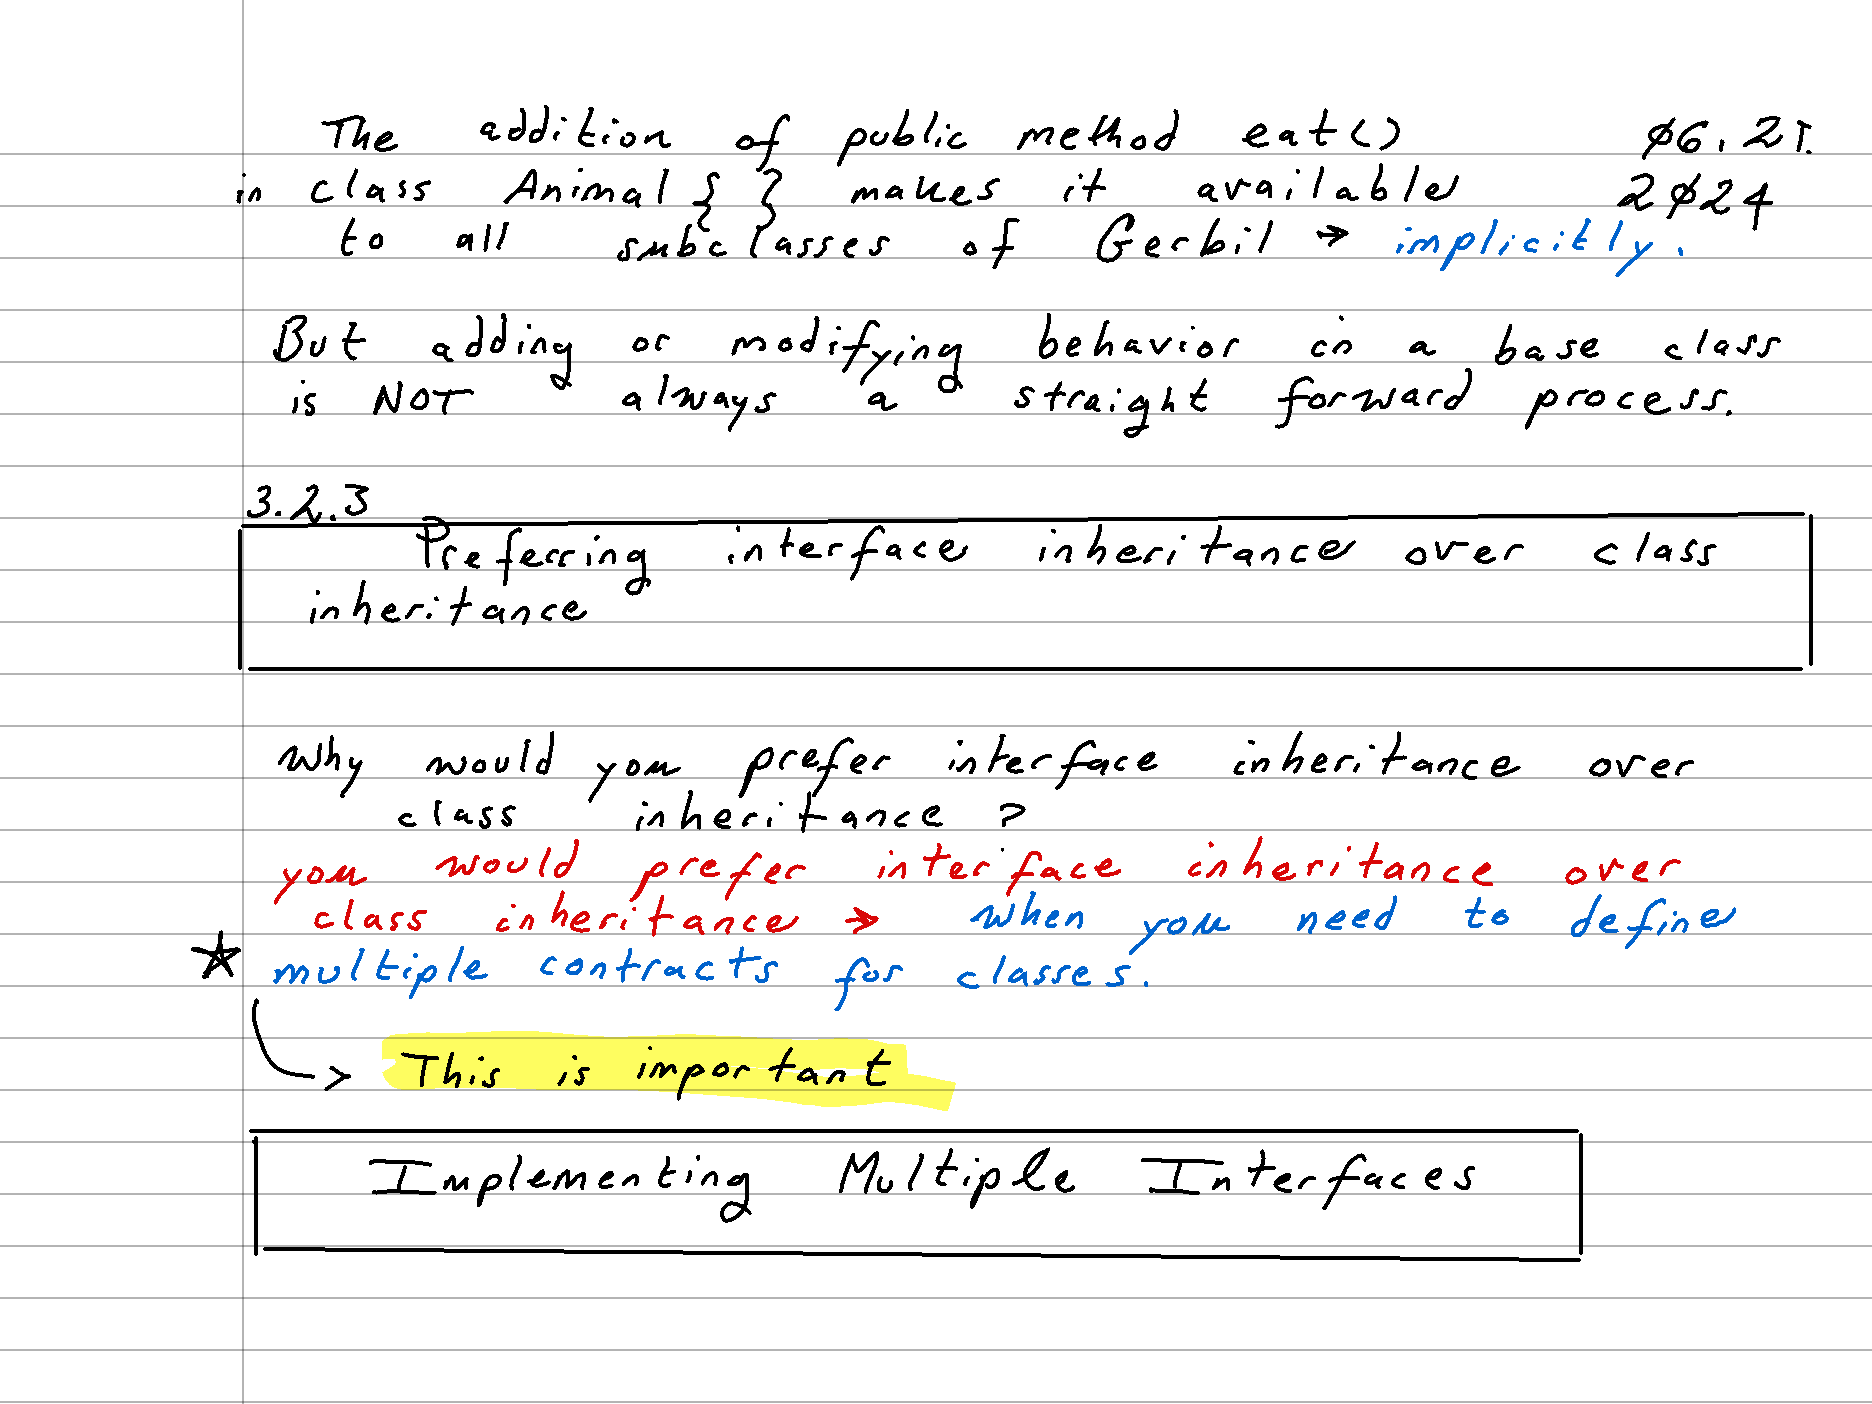 The addition of public method eat() ø6.21.
in class Animal { } makes it available 2ø24
to all subclasses of Gerbil → implicitly.
But adding or modifying behavior in a base class
is NOT always a straight forward process.
3.2.3
Preferring interface inheritance over class
inheritance
Why would you prefer interface inheritance over
class inheritance?
you would prefer interface inheritance over
class inheritance → when you need to define
★ multiple contracts for classes.
→ This is important
Implementing Multiple Interfaces